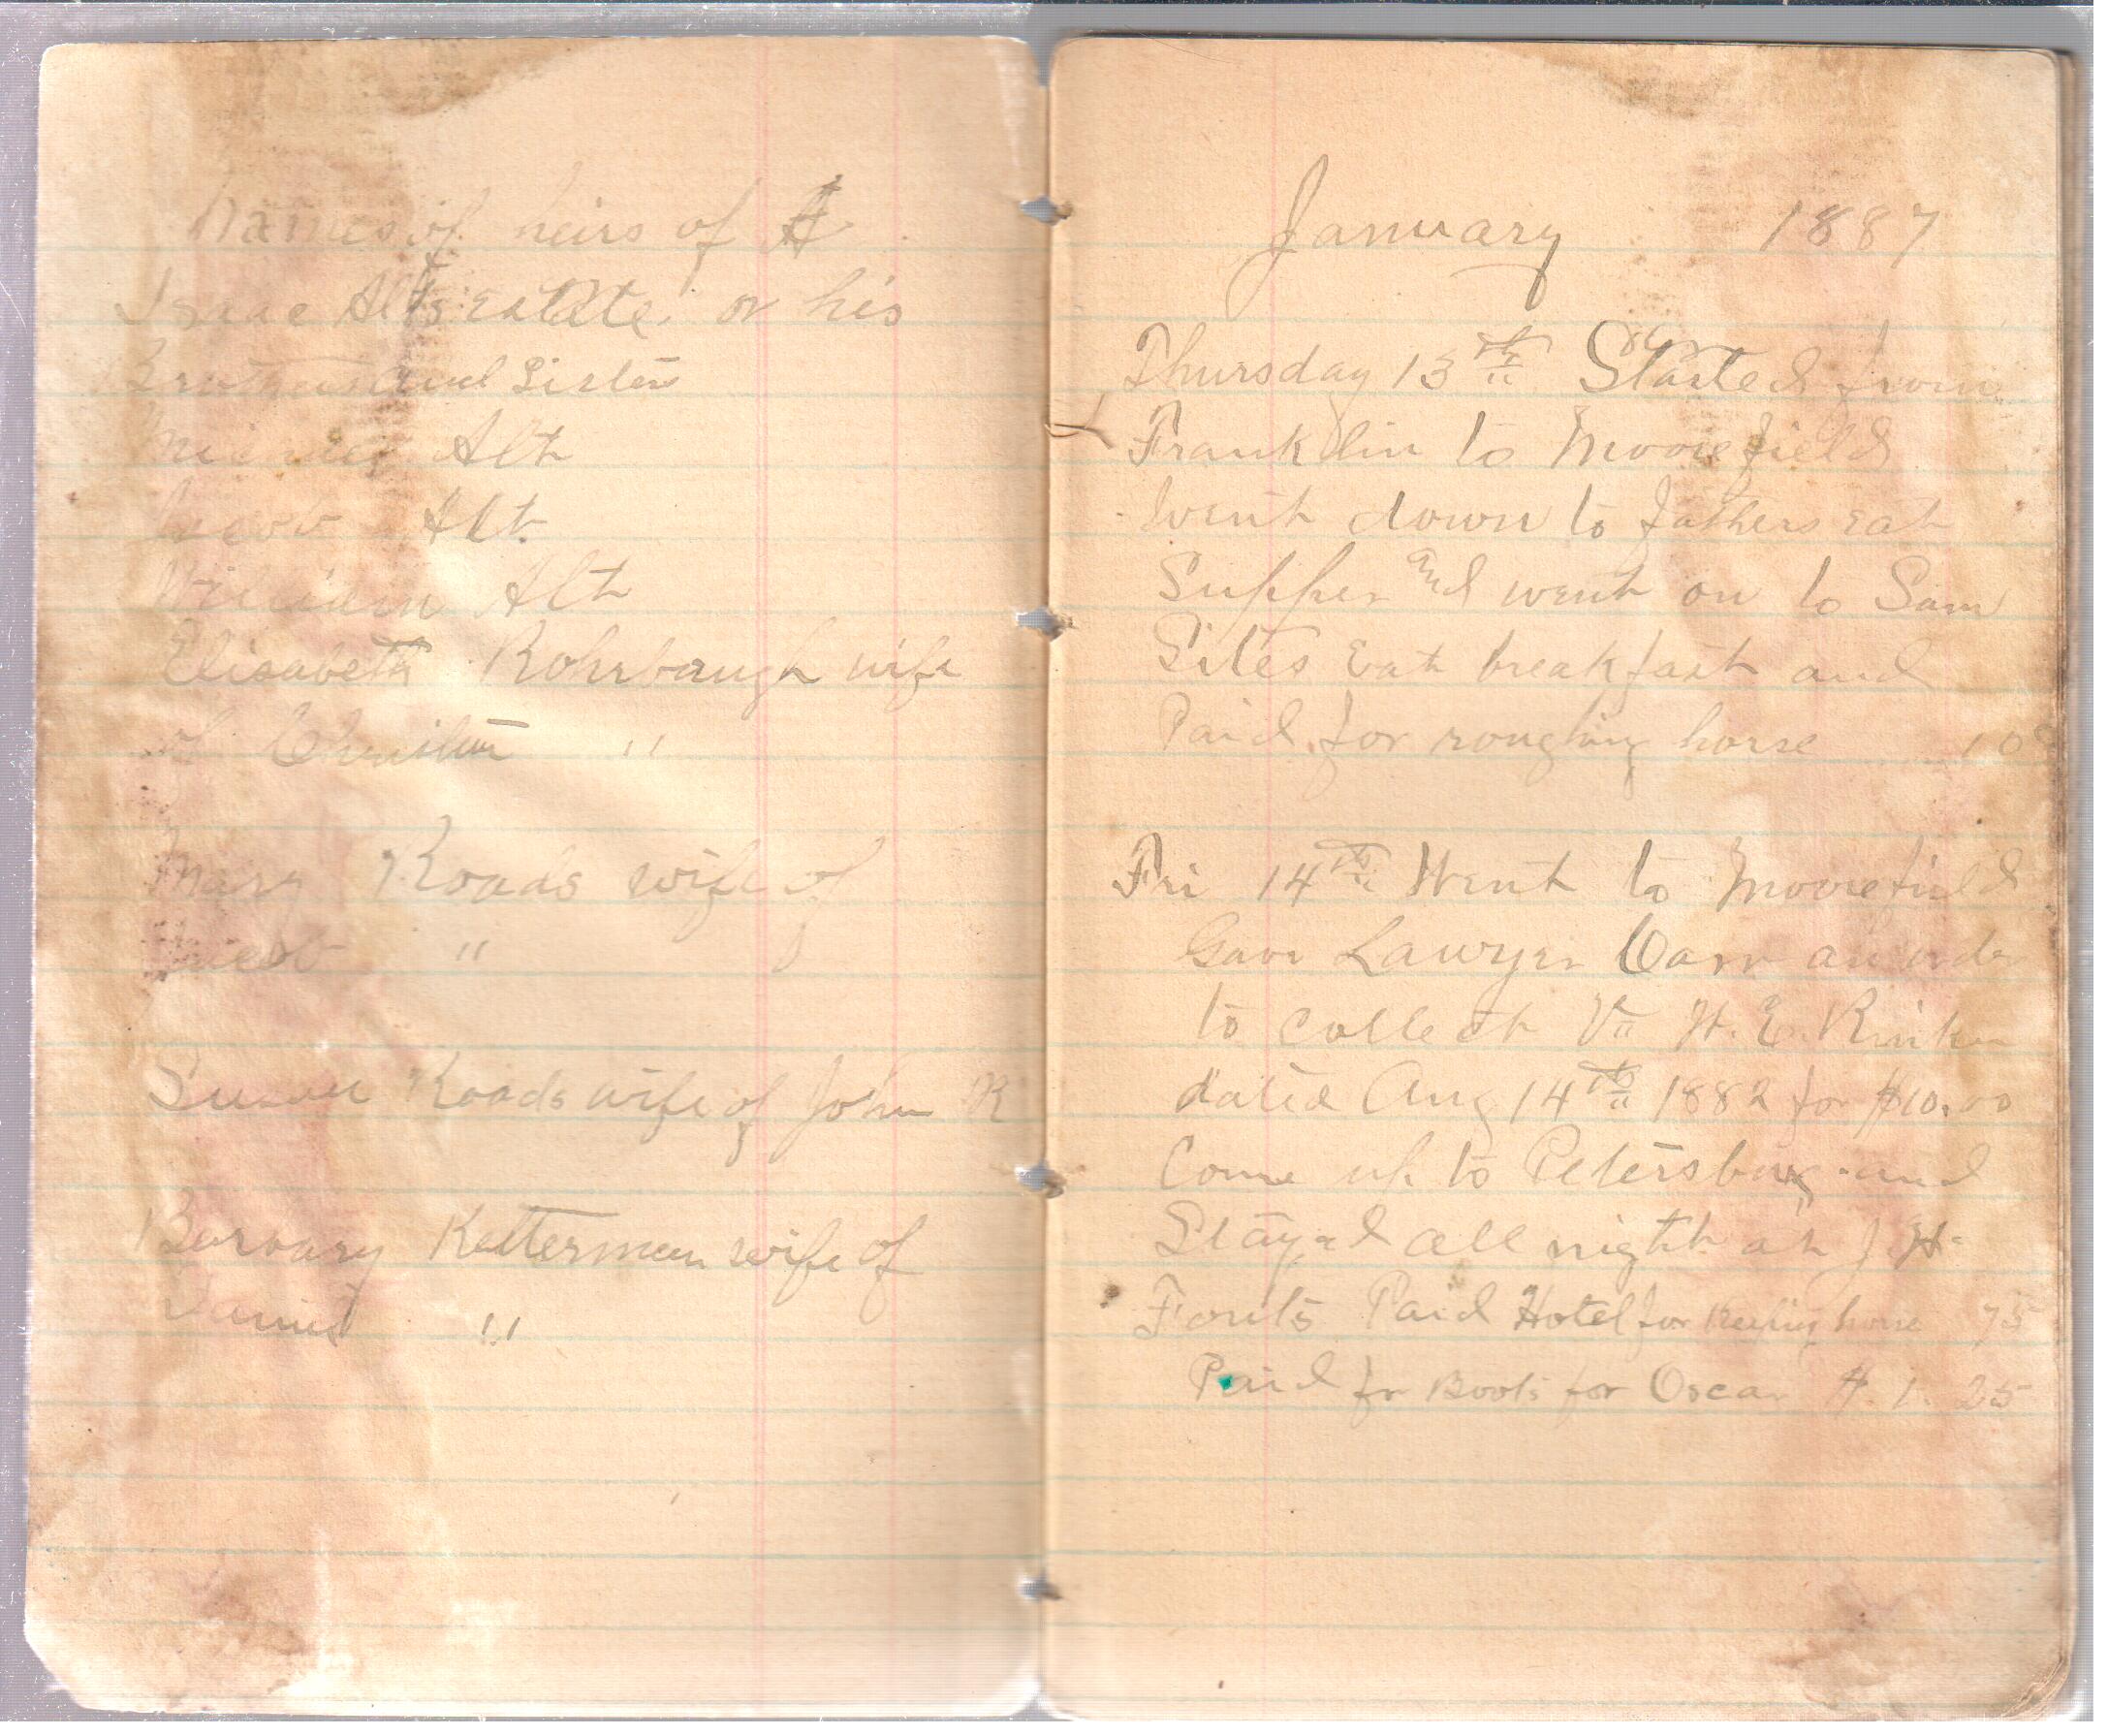 Names of heirs of A
Isaac Alts Estate or his
Brothers and Sisters
Michael Alt
Jacob Alt
William Alt
Elisabeth Rohrbaugh wife
of Christian "
Mary Roads wife of
Jacob "
Susan Roads wife of John R
Barbary Ketterman wife of
Daniel "
January 1887
Thursday 13th Started from
Franklin to Moorefield
went down to fathers Eat
Supper and went on to Sam
Sites Eat breakfast and
Paid for roughing horse 10
Fri 14th Went to Moorefield
Gave Lawyer Carr an order
to collect Vs H. E.
dated Aug 14th 1882 for $10.00
Come up to Petersburg and
Stayed all night at J H
Fouts Paid Hotel for Keeping horse 75
Paid for Boots for Oscar $ 1. 25